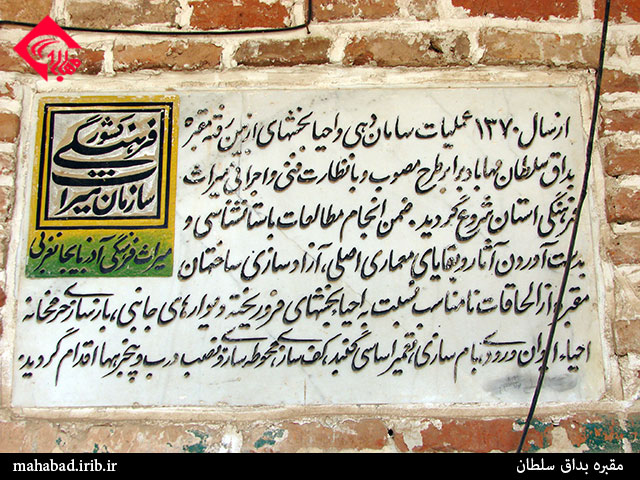 مهاباد
سازمان میراث
فرهنگی کشور
میراث فرهنگی آذربایجانغربی
از سال ۱۳۷۰ عملیات سامان دهی و احیا بخشهای از بین رفته مقبره
بداق سلطان مهاباد برابر طرح مصوب و با نظارت فنی و اجرائی میراث
فرهنگی استان شروع گردید. ضمن انجام مطالعات باستانشناسی و
بدست آوردن آثار و بقایای معماری اصلی، آزاد سازی ساختمان
مقبره از الحاقات نامناسب نسبت به احیاء بخشهای فرو ریخته و دیوارهای جانبی، باز سازی حرمخانه
احیاء ایوان ورودی، بام سازی، تعمیر اساسی گنبد، کف سازی محوطه سازی و نصب درب و پنجره‌ها اقدام گردید.
mahabad.irib.ir
مقبره بداق سلطان